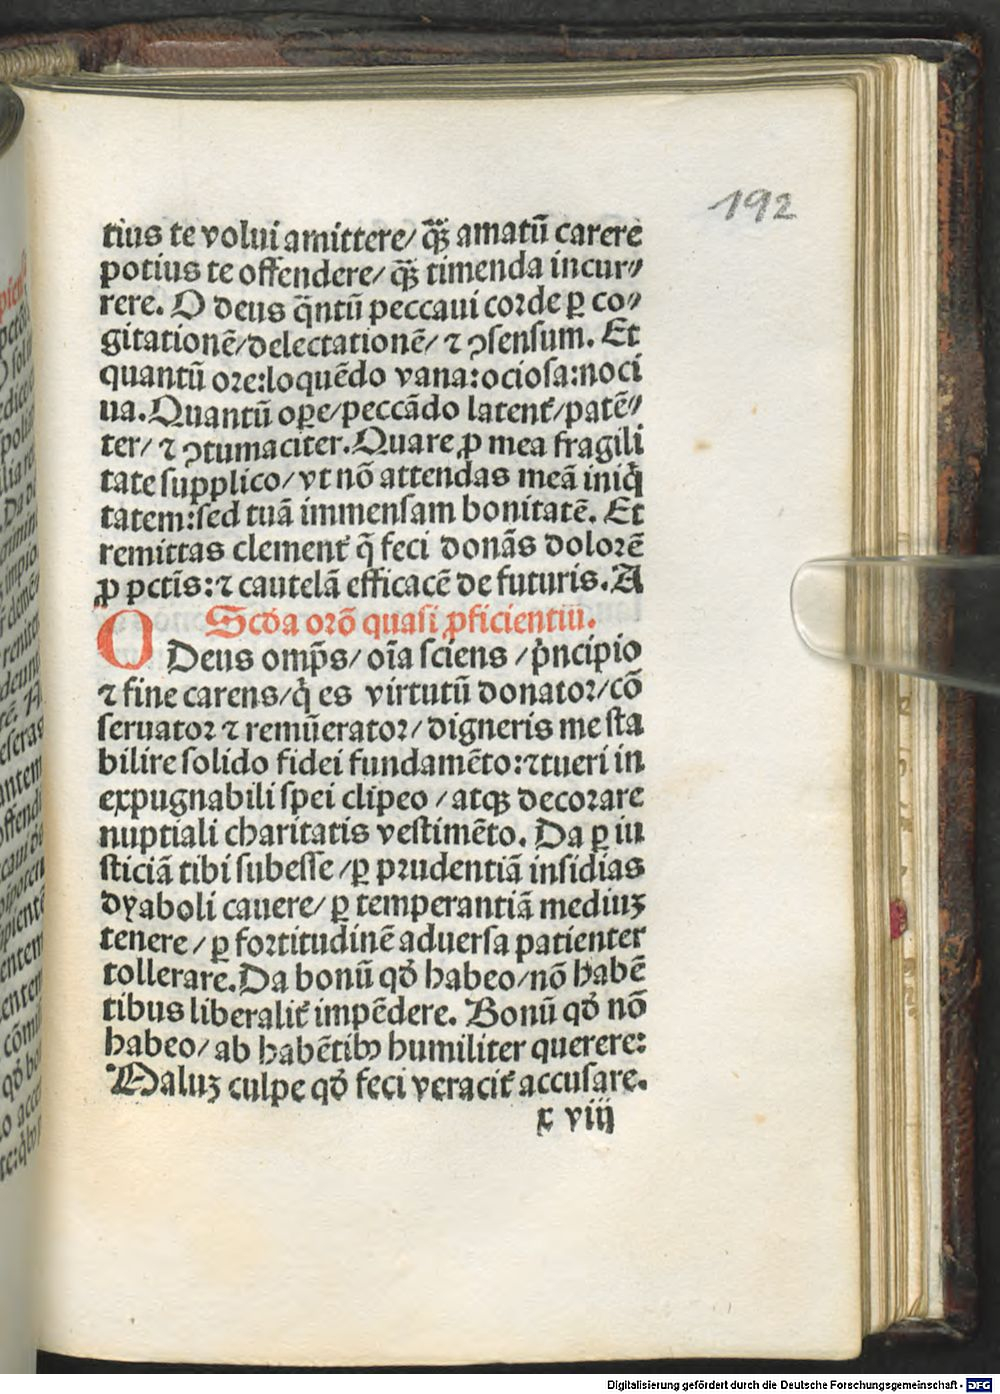 192
tius te volui amittere/ q̄ꝫ amatū carere
potius te offendere/ q̄ꝫ timenda incur⸗
rere. O deus q̄ntū peccaui corde ꝑ co⸗
gitationē/delectationē/ ⁊ ꝯsensum. Et
quantū ore:loquēdo vana:ociosa:noci
ua.Quantū oꝑe/peccādo latent̄/patē⸗
ter/ ⁊ ꝯtumaciter.Quare ꝓ mea fragili
tate supplico/vt nō attendas meā iniq̇
tatem:sed tuā immensam bonitatē. Et
remittas clement̄ q̄ feci donās dolorē
ꝓ pctīs:⁊ cautelā efficacē de futuris.A
Scd̄a orō quasi ꝓficientiū.
O Deus omp̄s/oīa sciens/pͥncipio
⁊ fine carens/q̇ es virtutū donator/cō
seruator ⁊ remūerator/digneris me sta
bilire solido fidei fundamēto:⁊tueri in
expugnabili spei clipeo/atqꝫ decorare
nuptiali charitatis vestimēto. Da ꝑ iu
sticiā tibi subesse/ꝑ prudentiā insidias
dyaboli cauere/ ꝑ temperantiā mediuꝫ
tenere/ꝑ fortitudinē aduersa patienter
tollerare.Da bonū qd̄ habeo/nō habē
tibus liberalit̄ impēdere. Bonū qd̄ nō
habeo/ab habētibꝰ humiliter querere:
Maluꝫ culpe qd̄ feci veracit̄ accusare.
x viij
Digitalisierung gefördert durch die Deutsche Forschungsgemeinschaft - DFG